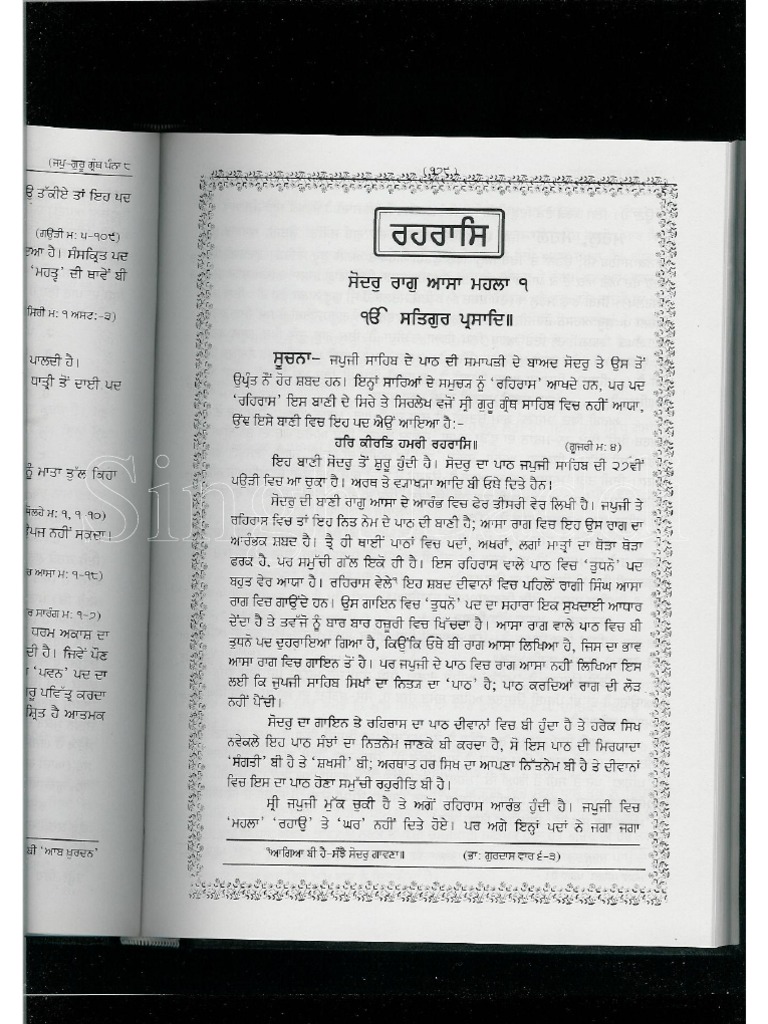 (ਜਪੁ-ਗੁਰੂ ਗ੍ਰੰਥ ਪੰਨਾ ੮
ਤੱਕੀਏ ਤਾਂ ਇਹ ਪਦ
(ਗਉੜੀ ਮ: ੫-੧੦੯)
ਹੈ। ਸੰਸਕ੍ਰਿਤ ਪਦ
'ਮਹਤ੍ਵ' ਦੀ ਥਾਵੇਂ ਬੀ
ਸਿਰੀ ਮ: ੧ ਅਸਟ:-੩)
ਪਾਲਦੀ ਹੈ।
ਧਾਤ੍ਰੀ ਤੋਂ ਦਾਈ ਪਦ
ਨੂੰ ਮਾਤਾ ਤੁੱਲ ਕਿਹਾ
ਮ: ੧, ੧-੧੦)
ਨਹੀਂ ਸਕਦਾ।
ਆਸਾ ਮ: ੧-੧੮)
ਸਾਰੰਗ ਮ: ੧-੭)
ਧਰਮ ਅਕਾਸ਼ ਦਾ
ਦੀ ਹੈ। ਜਿਵੇਂ ਪੌਣ
'ਪਵਨ' ਪਦ ਦਾ
ਪਵਿੱਤ੍ਰ ਕਰਦਾ
ਹੈ ਆਤਮਕ
ਬੀ 'ਆਬ ਖ਼ੁਰਦਨ'
(੧੭੯)
ਰਹਰਾਸਿ
ਸੋਦਰੁ ਰਾਗੁ ਆਸਾ ਮਹਲਾ ੧
ੴ ਸਤਿਗੁਰ ਪ੍ਰਸਾਦਿ॥
ਸੂਚਨਾ- ਜਪੁਜੀ ਸਾਹਿਬ ਦੇ ਪਾਠ ਦੀ ਸਮਾਪਤੀ ਦੇ ਬਾਅਦ ਸੋਦਰੁ ਤੇ ਉਸ ਤੋਂ
ਉਪ੍ਰੰਤ ਨੌਂ ਹੋਰ ਸ਼ਬਦ ਹਨ। ਇਨ੍ਹਾਂ ਸਾਰਿਆਂ ਦੇ ਸਮੁਚਯ ਨੂੰ 'ਰਹਿਰਾਸ' ਆਖਦੇ ਹਨ, ਪਰ ਪਦ
'ਰਹਿਰਾਸ' ਇਸ ਬਾਣੀ ਦੇ ਸਿਰੇ ਤੇ ਸਿਰਲੇਖ ਵਜੋਂ ਸ੍ਰੀ ਗੁਰੂ ਗ੍ਰੰਥ ਸਾਹਿਬ ਵਿਚ ਨਹੀਂ ਆਯਾ,
ਉੱਞ ਇਸੇ ਬਾਣੀ ਵਿਚ ਇਹ ਪਦ ਐਉਂ ਆਇਆ ਹੈ:-
ਹਰਿ ਕੀਰਤਿ ਹਮਰੀ ਰਹਰਾਸਿ॥ (ਗੂਜਰੀ ਮ: ੪)
ਇਹ ਬਾਣੀ ਸੋਦਰੁ ਤੋਂ ਸ਼ੁਰੂ ਹੁੰਦੀ ਹੈ। ਸੋਦਰੁ ਦਾ ਪਾਠ ਜਪੁਜੀ ਸਾਹਿਬ ਦੀ ੨੭ਵੀਂ
ਪਉੜੀ ਵਿਚ ਆ ਚੁਕਾ ਹੈ। ਅਰਥ ਤੇ ਵਯਾਖਯਾ ਆਦਿ ਬੀ ਓਥੇ ਦਿਤੇ ਹਨ।
ਸੋਦਰੁ ਦੀ ਬਾਣੀ ਰਾਗੁ ਆਸਾ ਦੇ ਆਰੰਭ ਵਿਚ ਫੇਰ ਤੀਸਰੀ ਵੇਰ ਲਿਖੀ ਹੈ। ਜਪੁਜੀ ਤੇ
ਰਹਿਰਾਸ ਵਿਚ ਤਾਂ ਇਹ ਨਿਤ ਨੇਮ ਦੇ ਪਾਠ ਦੀ ਬਾਣੀ ਹੈ; ਆਸਾ ਰਾਗ ਵਿਚ ਇਹ ਉਸ ਰਾਗ ਦਾ
ਆਰੰਭਕ ਸ਼ਬਦ ਹੈ। ਤ੍ਰੈ ਹੀ ਥਾਈਂ ਪਾਠਾਂ ਵਿਚ ਪਦਾਂ, ਅਖਰਾਂ, ਲਗਾਂ ਮਾਤ੍ਰਾਂ ਦਾ ਥੋੜਾ ਥੋੜਾ
ਫਰਕ ਹੈ, ਪਰ ਸਮੁੱਚੀ ਗੱਲ ਇਕੋ ਹੀ ਹੈ। ਇਸ ਰਹਿਰਾਸ ਵਾਲੇ ਪਾਠ ਵਿਚ 'ਤੁਧਨੋ' ਪਦ
ਬਹੁਤ ਵੇਰ ਆਯਾ ਹੈ। ਰਹਿਰਾਸ ਵੇਲੇ੧ ਇਹ ਸ਼ਬਦ ਦੀਵਾਨਾਂ ਵਿਚ ਪਹਿਲੋਂ ਰਾਗੀ ਸਿੰਘ ਆਸਾ
ਰਾਗ ਵਿਚ ਗਾਉਂਦੇ ਹਨ। ਉਸ ਗਾਇਨ ਵਿਚ 'ਤੁਧਨੋ' ਪਦ ਦਾ ਸਹਾਰਾ ਇਕ ਸੁਖਦਾਈ ਆਧਾਰ
ਦੇਂਦਾ ਹੈ ਤੇ ਤਵੱਜੋ ਨੂੰ ਬਾਰ ਬਾਰ ਹਜ਼ੂਰੀ ਵਿਚ ਖਿੱਚਦਾ ਹੈ। ਆਸਾ ਰਾਗ ਵਾਲੇ ਪਾਠ ਵਿਚ ਬੀ
ਤੁਧਨੋ ਪਦ ਦੁਹਰਾਇਆ ਗਿਆ ਹੈ, ਕਿਉਂਕਿ ਓਥੇ ਬੀ ਰਾਗ ਆਸਾ ਲਿਖਿਆ ਹੈ, ਜਿਸ ਦਾ ਭਾਵ
ਆਸਾ ਰਾਗ ਵਿਚ ਗਾਇਨ ਤੋਂ ਹੈ। ਪਰ ਜਪੁਜੀ ਦੇ ਪਾਠ ਵਿਚ ਰਾਗ ਆਸਾ ਨਹੀਂ ਲਿਖਿਆ ਇਸ
ਲਈ ਕਿ ਜੁਪਜੀ ਸਾਹਿਬ ਸਿਖਾਂ ਦਾ ਨਿਤਯ ਦਾ 'ਪਾਠ' ਹੈ; ਪਾਠ ਕਰਦਿਆਂ ਰਾਗ ਦੀ ਲੋੜ
ਨਹੀਂ ਪੈਂਦੀ।
ਸੋਦਰੁ ਦਾ ਗਾਇਨ ਤੇ ਰਹਿਰਾਸ ਦਾ ਪਾਠ ਦੀਵਾਨਾਂ ਵਿਚ ਬੀ ਹੁੰਦਾ ਹੈ ਤੇ ਹਰੇਕ ਸਿਖ
ਨਵੇਕਲੇ ਇਹ ਪਾਠ ਸੰਝਾਂ ਦਾ ਨਿਤਨੇਮ ਜਾਣਕੇ ਬੀ ਕਰਦਾ ਹੈ, ਸੋ ਇਸ ਪਾਠ ਦੀ ਮਿਰਯਾਦਾ
'ਸੰਗਤੀ' ਬੀ ਹੈ ਤੇ 'ਸ਼ਖਸੀ' ਬੀ; ਅਰਥਾਤ ਹਰ ਸਿਖ ਦਾ ਆਪਣਾ ਨਿੱਤਨੇਮ ਬੀ ਹੈ ਤੇ ਦੀਵਾਨਾਂ
ਵਿਚ ਇਸ ਦਾ ਪਾਠ ਹੋਣਾ ਸਮੁੱਚੀ ਰਹੁਰੀਤਿ ਬੀ ਹੈ।
ਸ੍ਰੀ ਜਪੁਜੀ ਮੁੱਕ ਚੁਕੀ ਹੈ ਤੇ ਅਗੋਂ ਰਹਿਰਾਸ ਆਰੰਭ ਹੁੰਦੀ ਹੈ। ਜਪੁਜੀ ਵਿਚ
'ਮਹਲਾ' 'ਰਹਾਉ' ਤੇ 'ਘਰ' ਨਹੀਂ ਦਿਤੇ ਹੋਏ। ਪਰ ਅਗੇ ਇਨ੍ਹਾਂ ਪਦਾਂ ਨੇ ਜਗਾ ਜਗਾ
੧ਆਗਿਆ ਬੀ ਹੈ-ਸੰਝੈ ਸੋਦਰੁ ਗਾਵਣਾ॥ (ਭਾ: ਗੁਰਦਾਸ ਵਾਰ ੬-੩)